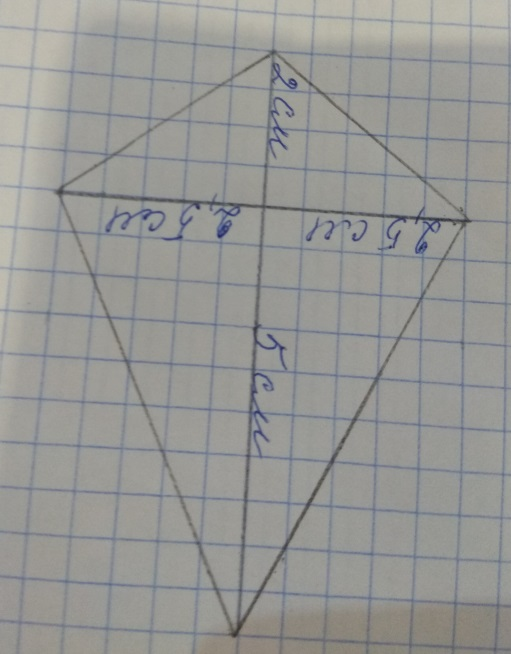 2 см
2,5 см
2,5 см
5 см